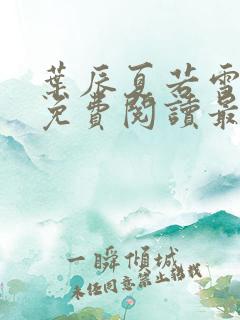 葉辰夏若雪
免費閱讀最
一瞬傾城
未經同意禁止轉載